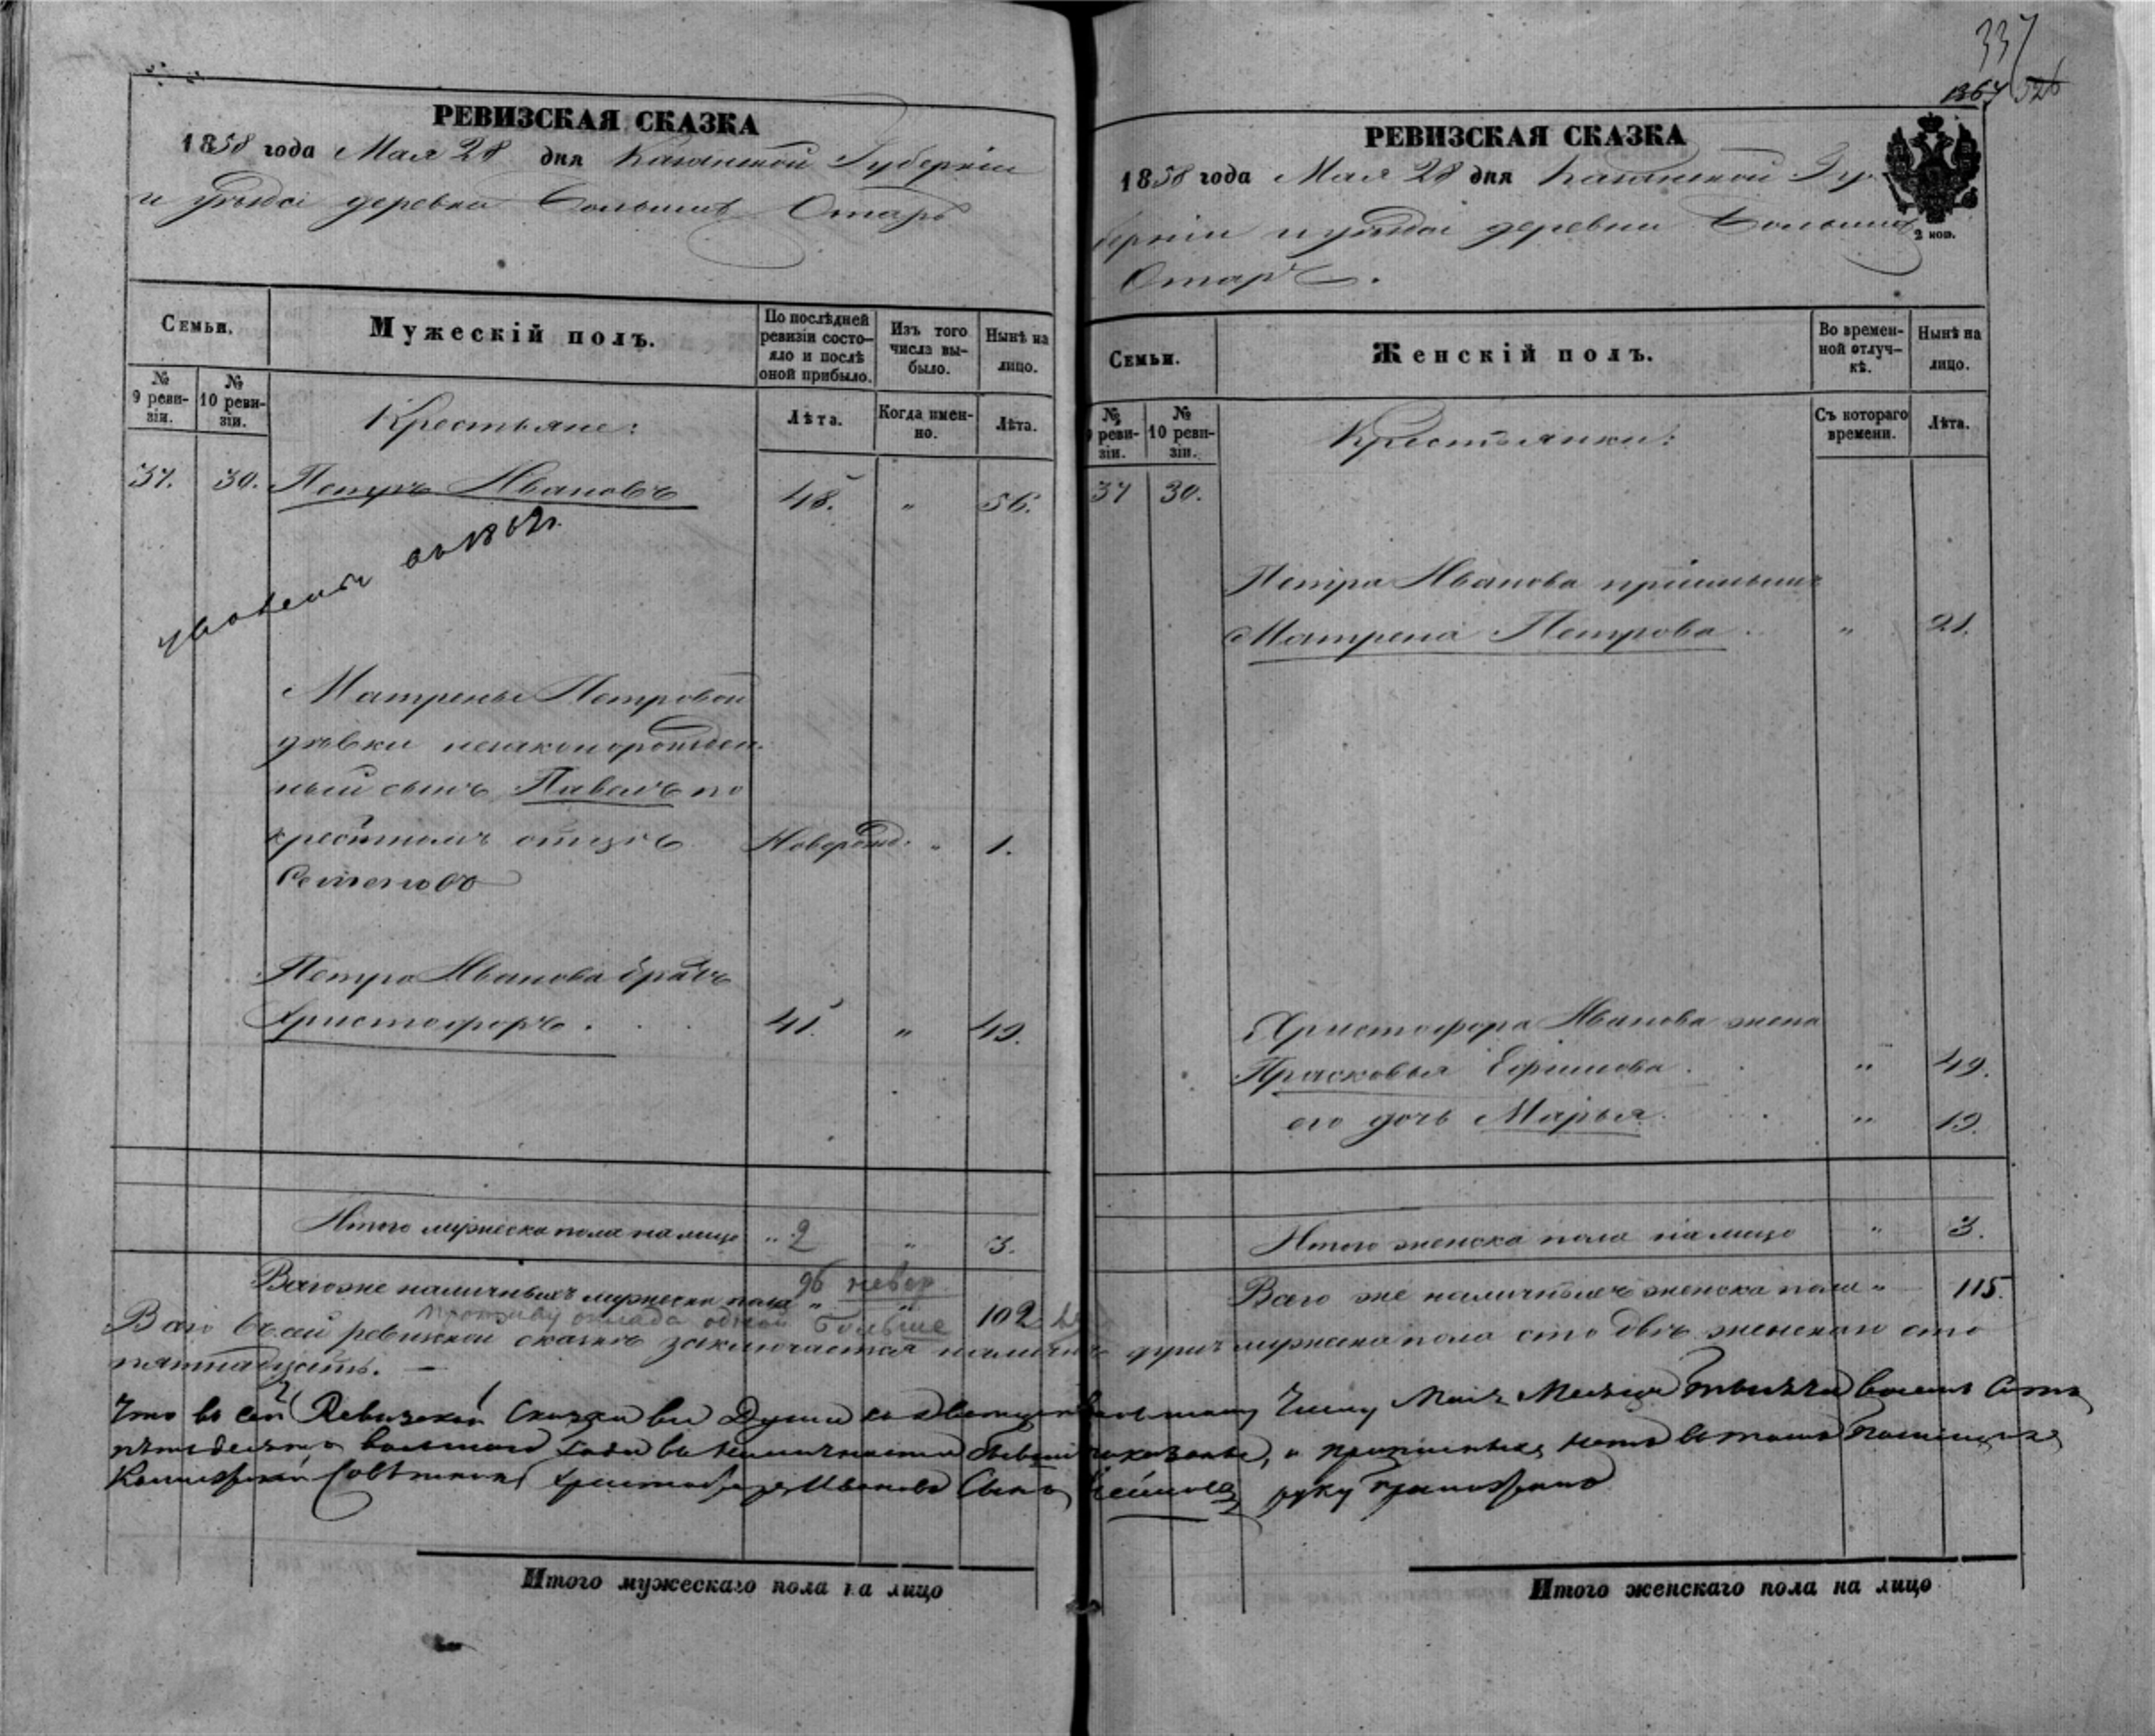 337
1364 326
РЕВИЗСКАЯ СКАЗКА
1858 года Мая 28 дня Казанской Губерніи
и уѣзда деревни Большихъ Отаръ
Семьи.
Мужескій полъ.
По послѣдней ревизіи состояло и послѣ оной прибыло.
Изъ того числа выбыло.
Нынѣ на лицо.
№ 9 ревизіи.
№ 10 ревизіи.
Крестьяне:
Лѣта.
Когда именно.
Лѣта.
37. 30. Петръ Ивановъ 48. " 56.
въ 1862г.
Матрены Петровой
дѣвки незаконорожден-
ный сынъ Павелъ по
крестномъ отцѣ Новорожд. " 1.
Семеновъ
Петра Иванова братъ
Христофоръ . . . 41. " 49.
Итого мужеска пола на лицо " 2 " 3.
96 невор
Всего же наличныхъ мужеска пола " " 102
противу оклада одной больше
РЕВИЗСКАЯ СКАЗКА
1858 года Мая 28 дня Казанской Гу-
берніи и уѣзда деревни Большихъ
2 коп.
Отаръ.
Семьи.
Женскій полъ.
Во временной отлучкѣ.
Нынѣ на лицо.
№ 9 ревизіи.
№ 10 ревизіи.
Крестьянки:
Съ котораго времени.
Лѣта.
37 30.
Петра Иванова
Матрена Петрова . " 21.
Христофора Иванова жена
Прасковья Ефимова . . " 49.
его дочь Марья . . . " 19.
Итого женска пола на лицо " 3.
Всего же наличныхъ женска пола " 115.
Всего въ сей ревизской сказкѣ заключается наличныхъ душъ мужеска пола сто двѣ женскаго сто
пятнадцать. —
Что въ сей Ревизской Сказки все Души къ двадцать осьмому Числу Маія Месяца тысяча восемь сотъ
пятьдесятъ восьмого Года въ наличности показаны, а прописныхъ нетъ въ томъ помещикъ
Коллежской Советникъ Христофоръ Ивановъ Сынъ руку приложилъ
Итого мужескаго пола на лицо
Итого женскаго пола на лицо